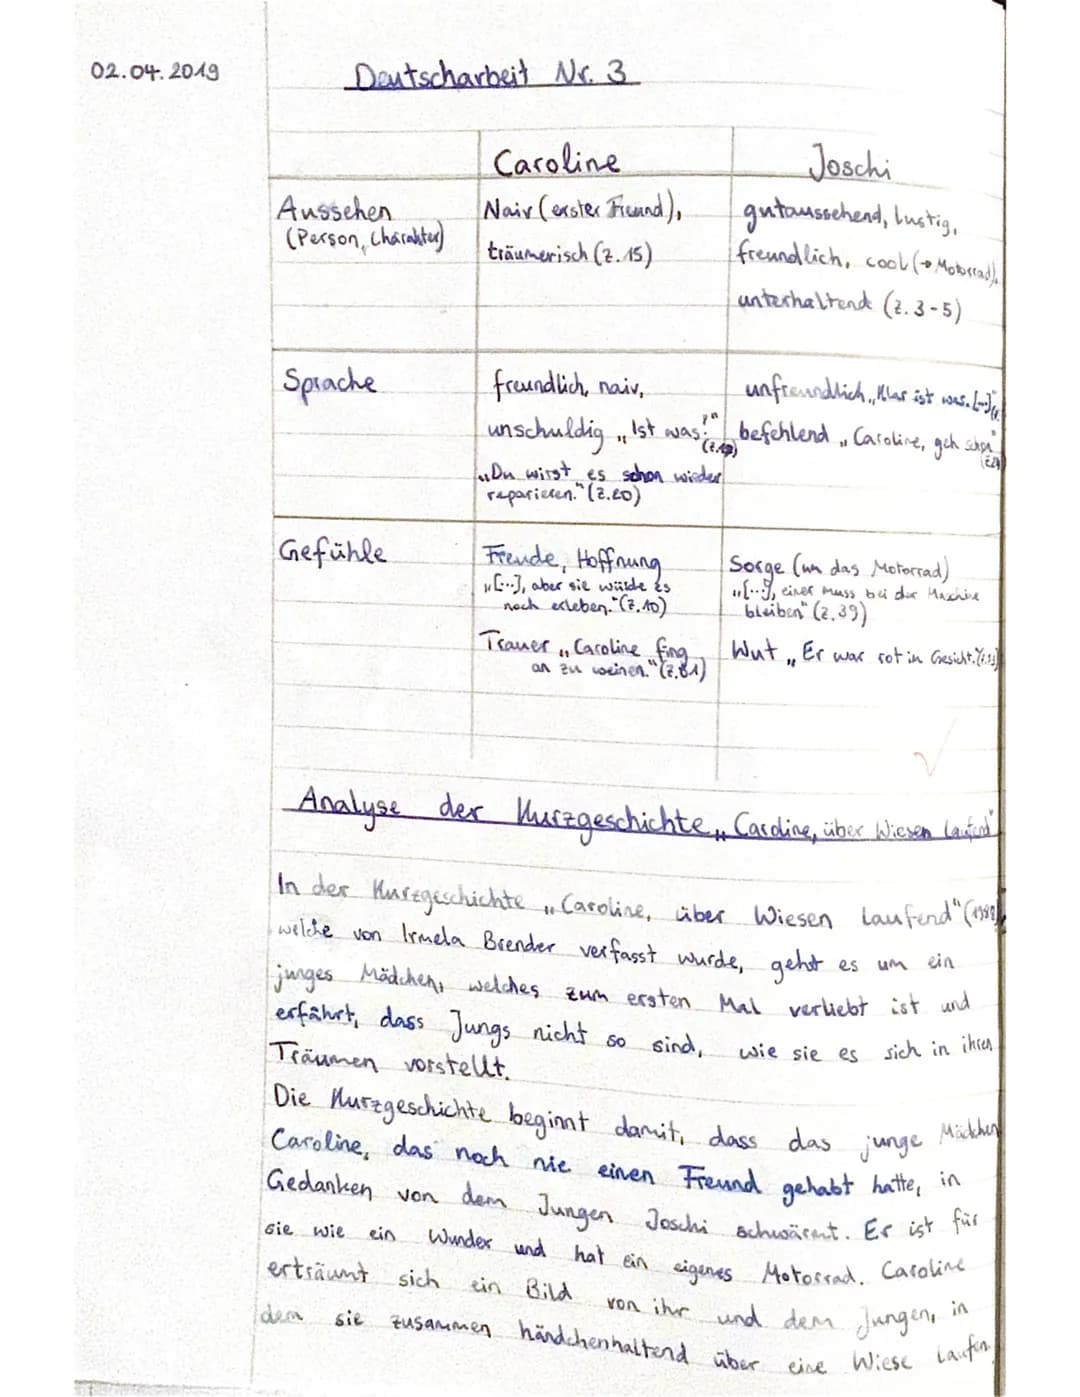 02.04.2019
Deutscharbeit Nr. 3
Caroline
Joschi
Aussehen
(Person, Charakter)
Naiv (erster Freund),
träumerisch (Z. 15)
gutaussehend, lustig,
freundlich, cool (→ Motorrad),
unterhaltend (Z. 3-5)
Sprache
freundlich, naiv,
unschuldig „Ist was?"
„Du wirst es schon wieder
reparieren." (Z.20)
unfreundlich „Klar ist was. [...]"
befehlend „Caroline, geh schon"
Gefühle
Freude, Hoffnung
„[...], aber sie würde es
noch erleben." (Z.10)
Trauer „Caroline fing
an zu weinen." (Z.81)
Sorge (um das Motorrad)
„[...], einer muss bei der Maschine
bleiben" (Z.39)
Wut „Er war rot im Gesicht."
Analyse der Kurzgeschichte „Caroline, über Wiesen laufend"
In der Kurzgeschichte „Caroline, über Wiesen laufend"
welche von Irmela Brender verfasst wurde, geht es um ein
junges Mädchen, welches zum ersten Mal verliebt ist und
erfährt, dass Jungs nicht so sind, wie sie es sich in ihren
Träumen vorstellt.
Die Kurzgeschichte beginnt damit, dass das junge Mädchen
Caroline, das noch nie einen Freund gehabt hatte, in
Gedanken von dem Jungen Joschi schwärmt. Er ist für
sie wie ein Wunder und hat ein eigenes Motorrad. Caroline
erträumt sich ein Bild von ihr und dem Jungen, in
dem sie zusammen händchenhaltend über eine Wiese laufen.